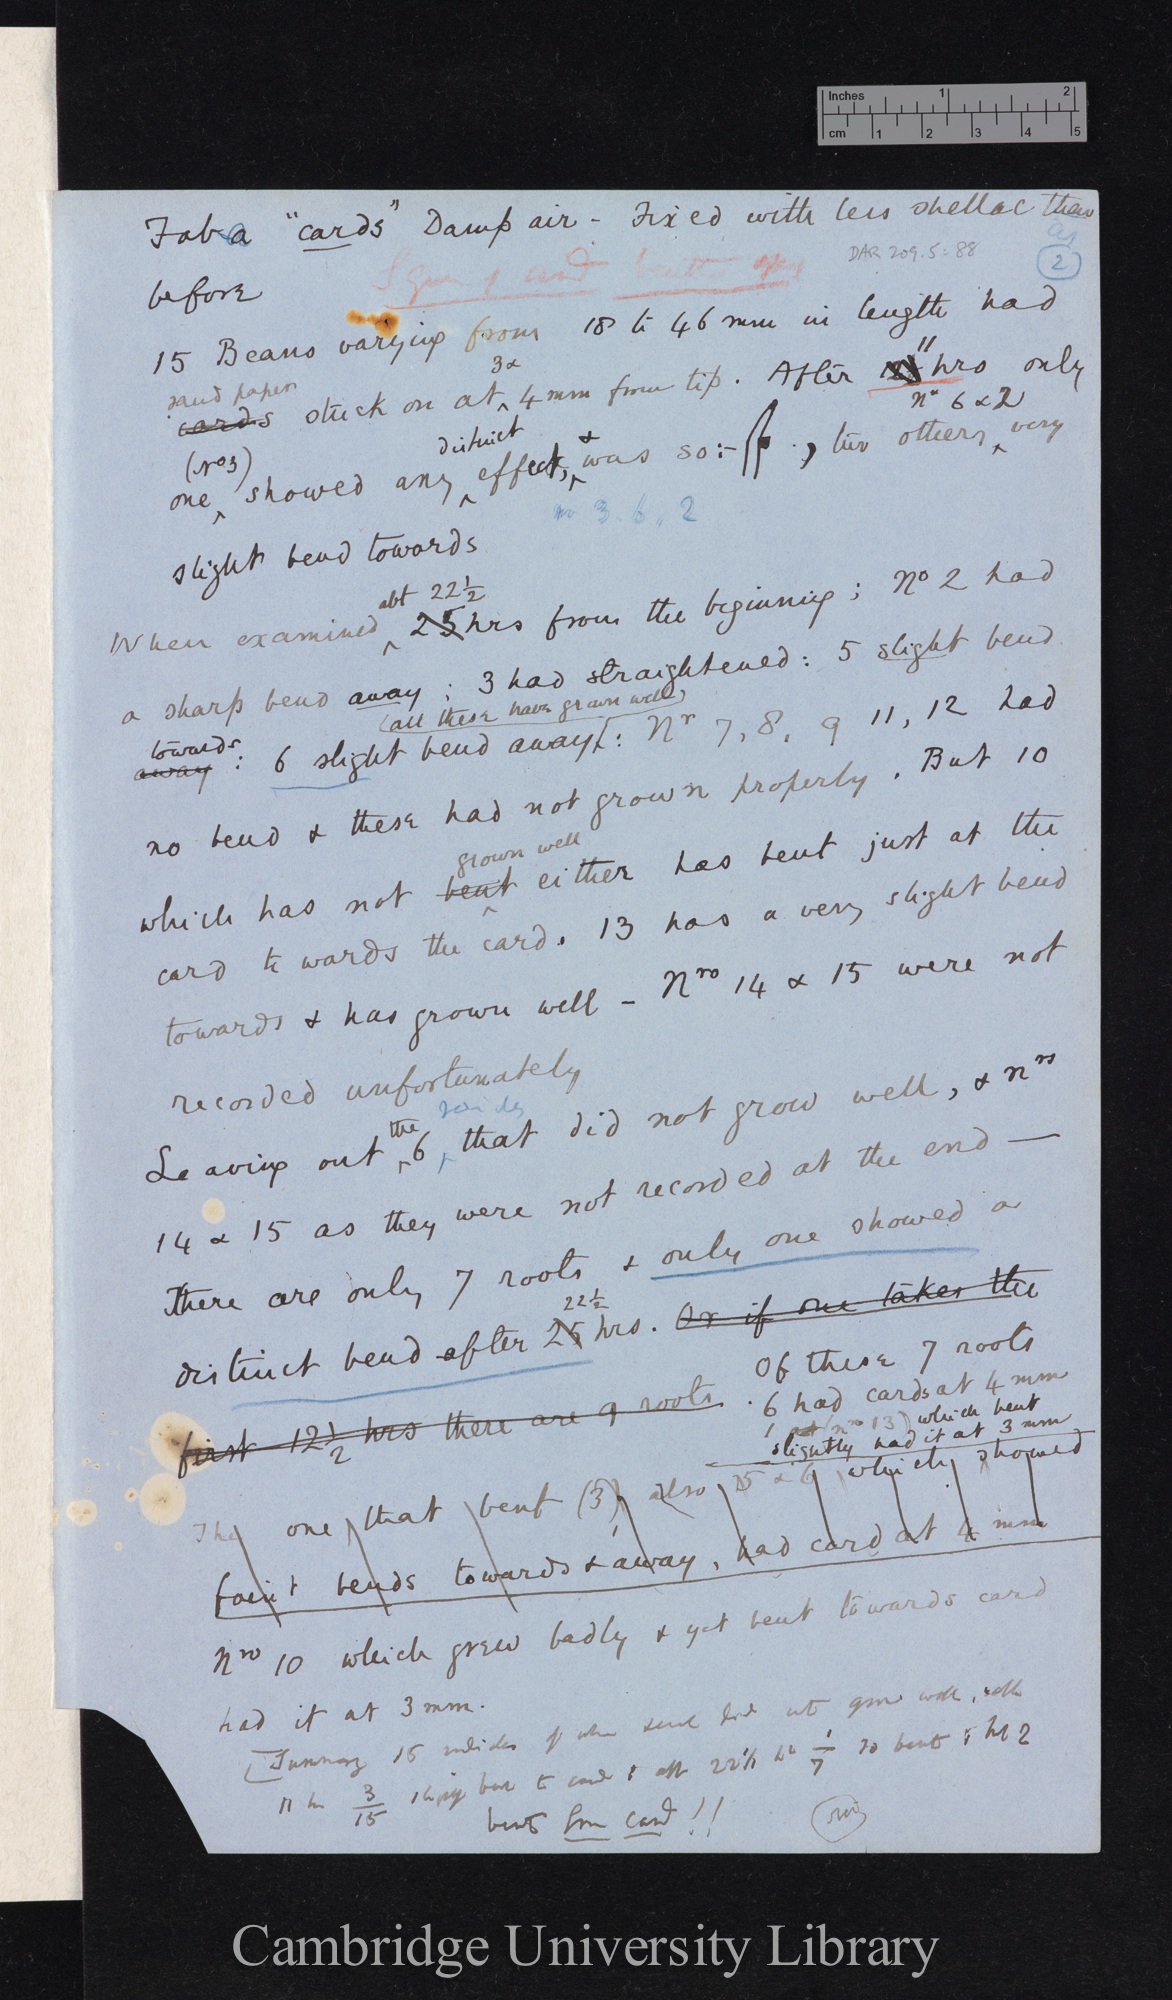 Inches 1 2
cm 1 2 3 4 5
Faba "cards" Damp air - Fixed with less shellac than
as
DAR 209.5:88
2
before
15 Beans varying from 18 to 46 mm in length had
sand paper
3 &
11
cards stuck on at 4 mm from tip. After hrs only
(No 3)
distinct
&
No 6 & 2
one showed any effect, was so:- , two others very
3. 6. 2
slight bend towards
abt 22½
When examined 25 hrs from the beginning; No 2 had
a sharp bend away; 3 had straightened: 5 slight bend
towards
(all these have grown well)
away: 6 slight bend away: Nr 7, 8, 9 11, 12 had
no bend & these had not grown properly. But 10
grown well
which has not bent either has bent just at the
card towards the card. 13 has a very slight bend
towards & has grown well - Nro 14 & 15 were not
recorded unfortunately
the
Leaving out 6 that did not grow well, & nrs
14 & 15 as they were not recorded at the end —
There are only 7 roots & only one showed a
22½
distinct bend after 25 hrs. Or if one takes the
first 12½ hrs there are 9 roots.
Of these 7 roots
6 had cards at 4 mm
1 (nro 13) which bent
slightly had it at 3 mm
The one that bent (3) also 5 & 6 which showed
faint bends towards & away, had card at 4 mm
Nro 10 which grew badly & yet bent towards card
had it at 3 mm.
[Summary 15 radicles of when did not grow well, after
11 h 3/15 bent to card & aft 22½ h 1/7 so bent & No 2
bent from card!!
Cambridge University Library